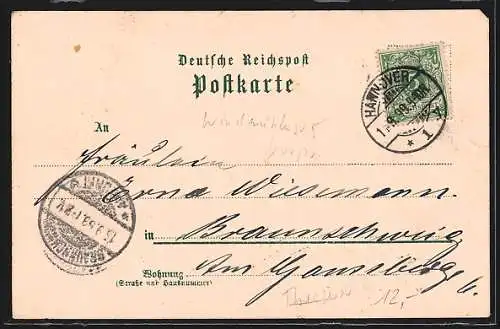 Deutsche Reichspost
Postkarte
HANNOVER
1
An
Fräulein
Erna Wiesemann
in Braunschweig
Am Gausseberg 6.
Wohnung
(Straße und Hausnummer)
12,-